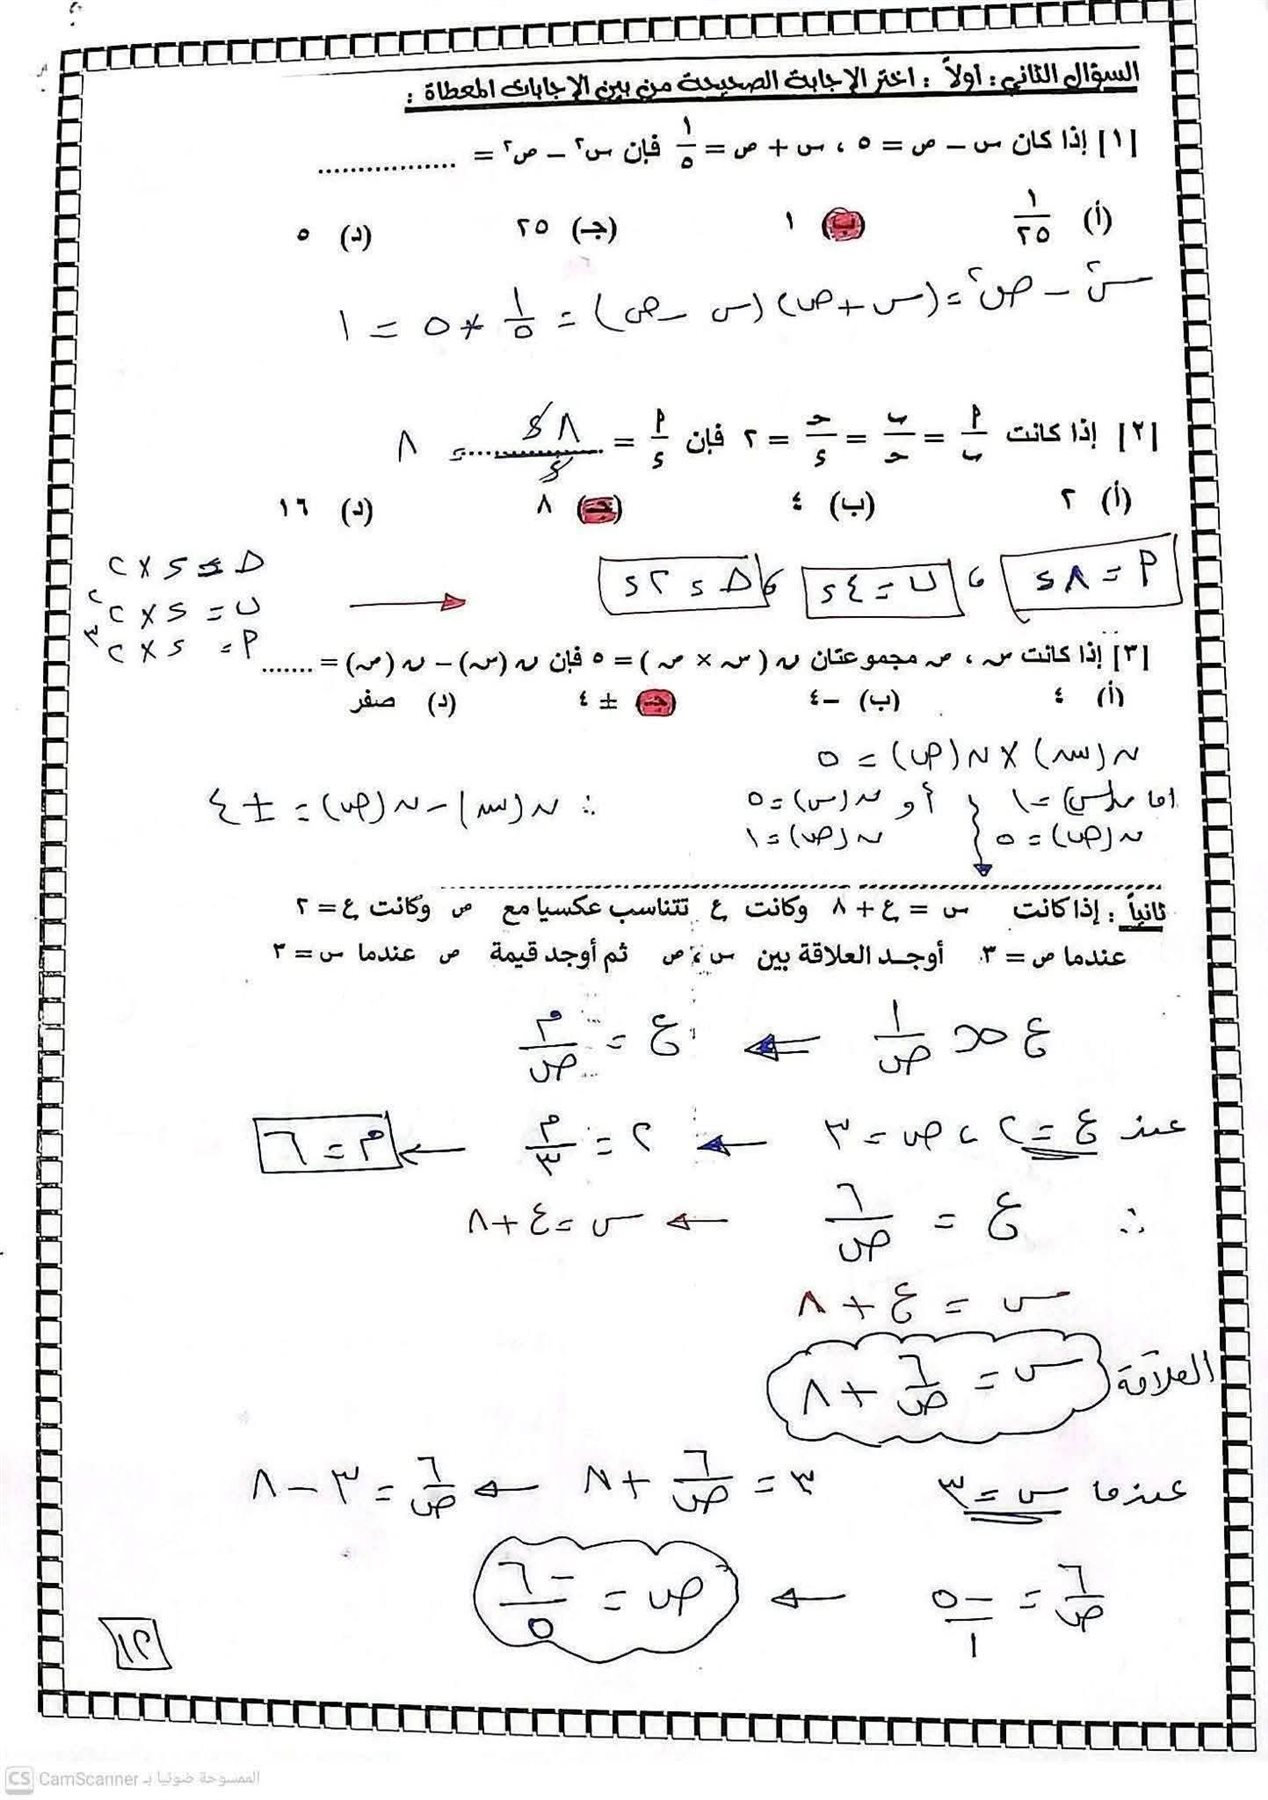 السؤال الثاني : أولاً : اختر الإجابة الصحيحة من بين الإجابات المعطاة :
[١] إذا كان س – ص = ٥ ، س + ص = ١/٥ فإن س٢ – ص٢ = .................
(أ) ١/٢٥ (ب) ١ (جـ) ٢٥ (د) ٥
س٢ – ص٢ = (س + ص) (س – ص) = ١/٥ * ٥ = ١
[٢] إذا كانت م/ب = ب/حـ = حـ/ء = ٢ فإن م/ء = ٨ء/ء ........ = ٨
(أ) ٢ (ب) ٤ (جـ) ٨ (د) ١٦
م = ٨ء ، ب = ٤ء ، حـ = ٢ء
حـ = ء × ٢
ب = ء × ٢٢
م = ء × ٢٣
[٣] إذا كانت س ، ص مجموعتان ن (س × ص) = ٥ فإن ن (س) – ن (ص) = .......
(أ) ٤ (ب) –٤ (جـ) ± ٤ (د) صفر
ن (س) × ن (ص) = ٥
اما ن(س) = ١ أو ن(س) = ٥
ن(ص) = ٥ ن(ص) = ١
∴ ن (س) – ن (ص) = ± ٤
ثانياً : إذا كانت س = ع + ٨ وكانت ع تتناسب عكسيا مع ص وكانت ع = ٢
عندما ص = ٣ أوجد العلاقة بين س ، ص ثم أوجد قيمة ص عندما س = ٣
ع ∝ ١/ص ⇐ ع = م/ص
عند ع = ٢ ، ص = ٣ ← ٢ = م/٣ ← م = ٦
∴ ع = ٦/ص ← س = ع + ٨
س = ع + ٨
العلاقة س = ٦/ص + ٨
عندما س = ٣ ٣ = ٦/ص + ٨ ← ٦/ص = ٣ – ٨
٦/ص = –٥/١ ← ص = –٦/٥
١٢
CS CamScanner الممسوحة ضوئيا بـ